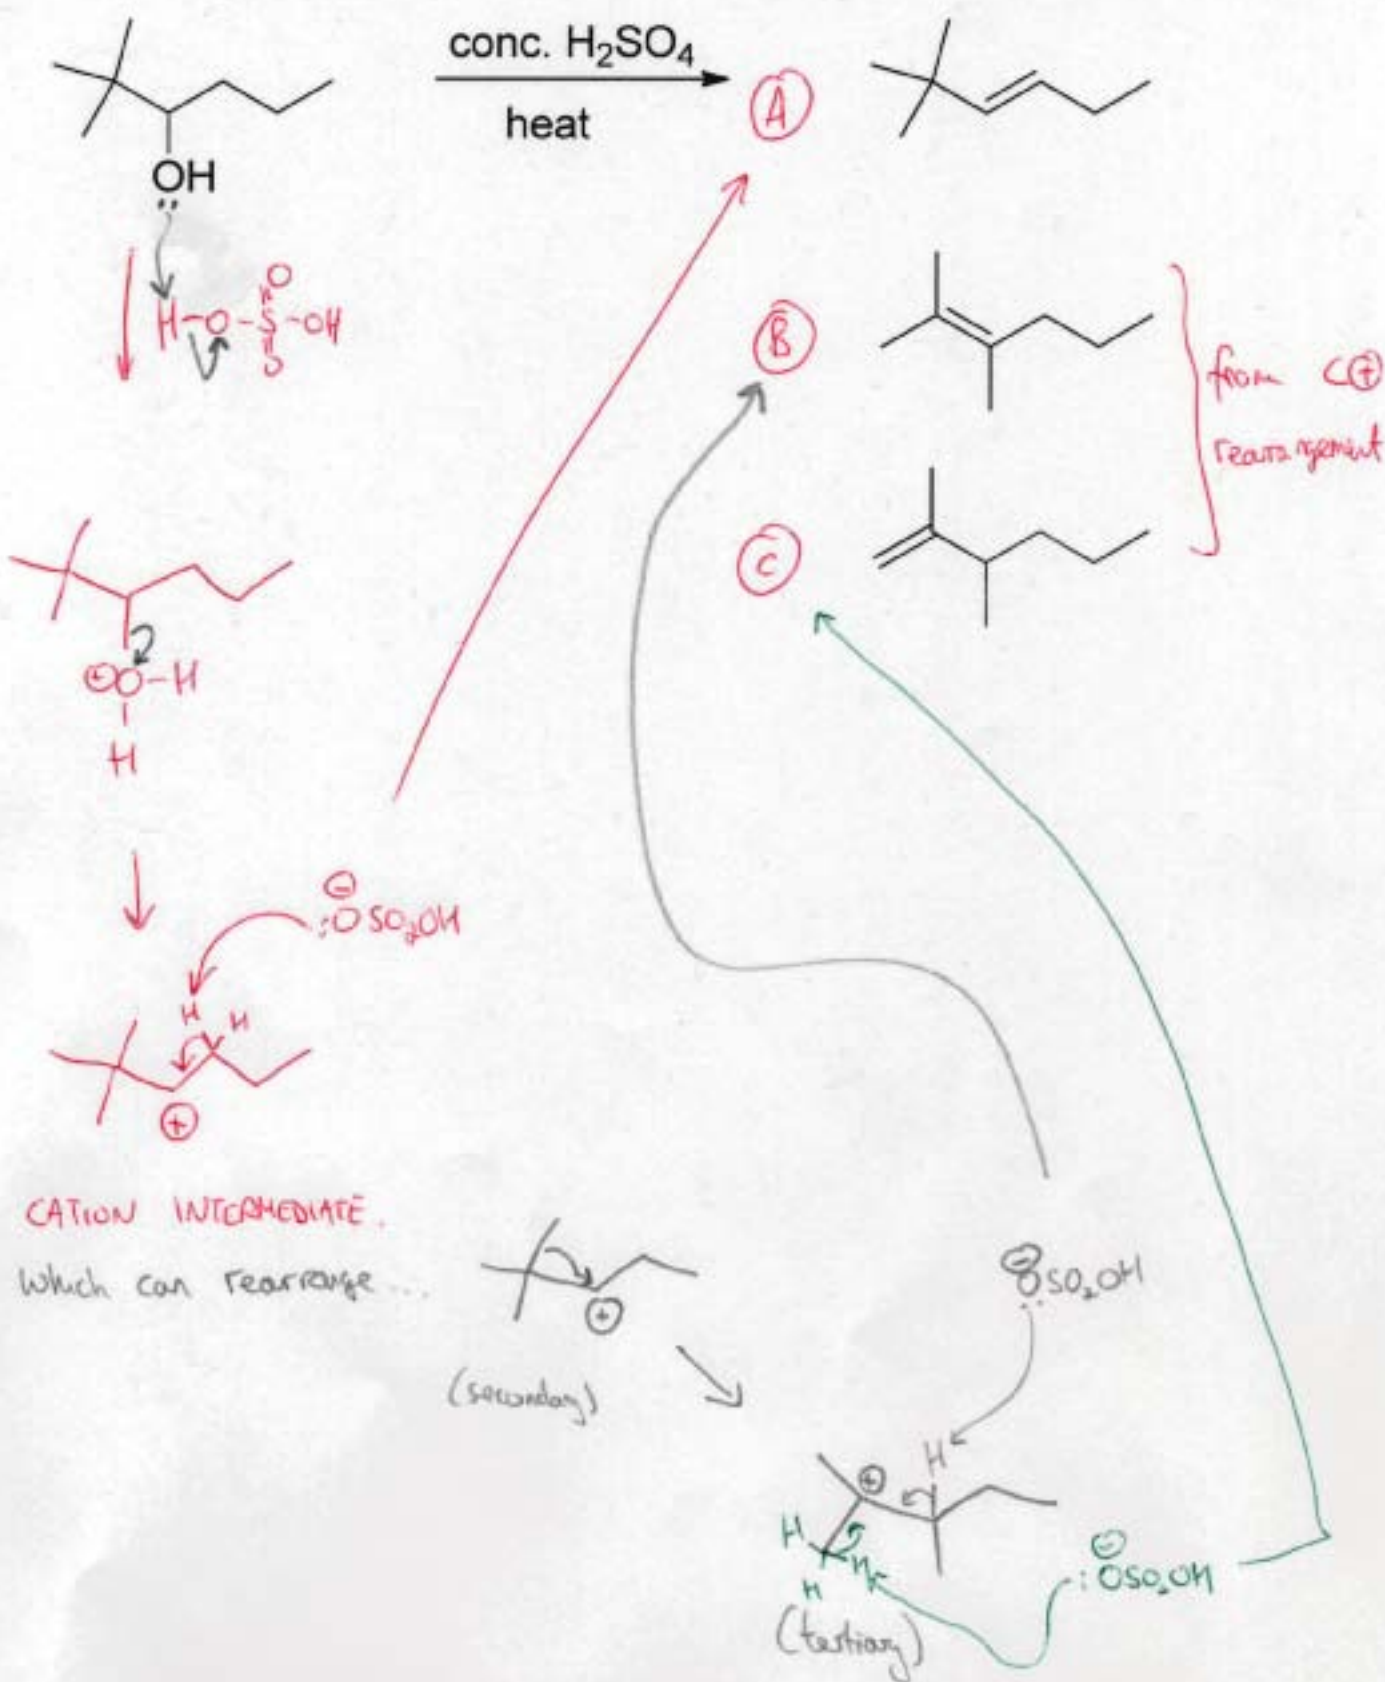 conc. H₂SO₄
heat
A
OH
..
H-O-S-OH
O
O
B
from C⊕
rearrangement
C
⊕O-H
H
⊖
:OSO₂OH
H H
⊕
CATION INTERMEDIATE.
Which can rearrange...
⊕
(secondary)
⊖
OSO₂OH
..
H
⊕
H
H
H
⊖
:OSO₂OH
(tertiary)